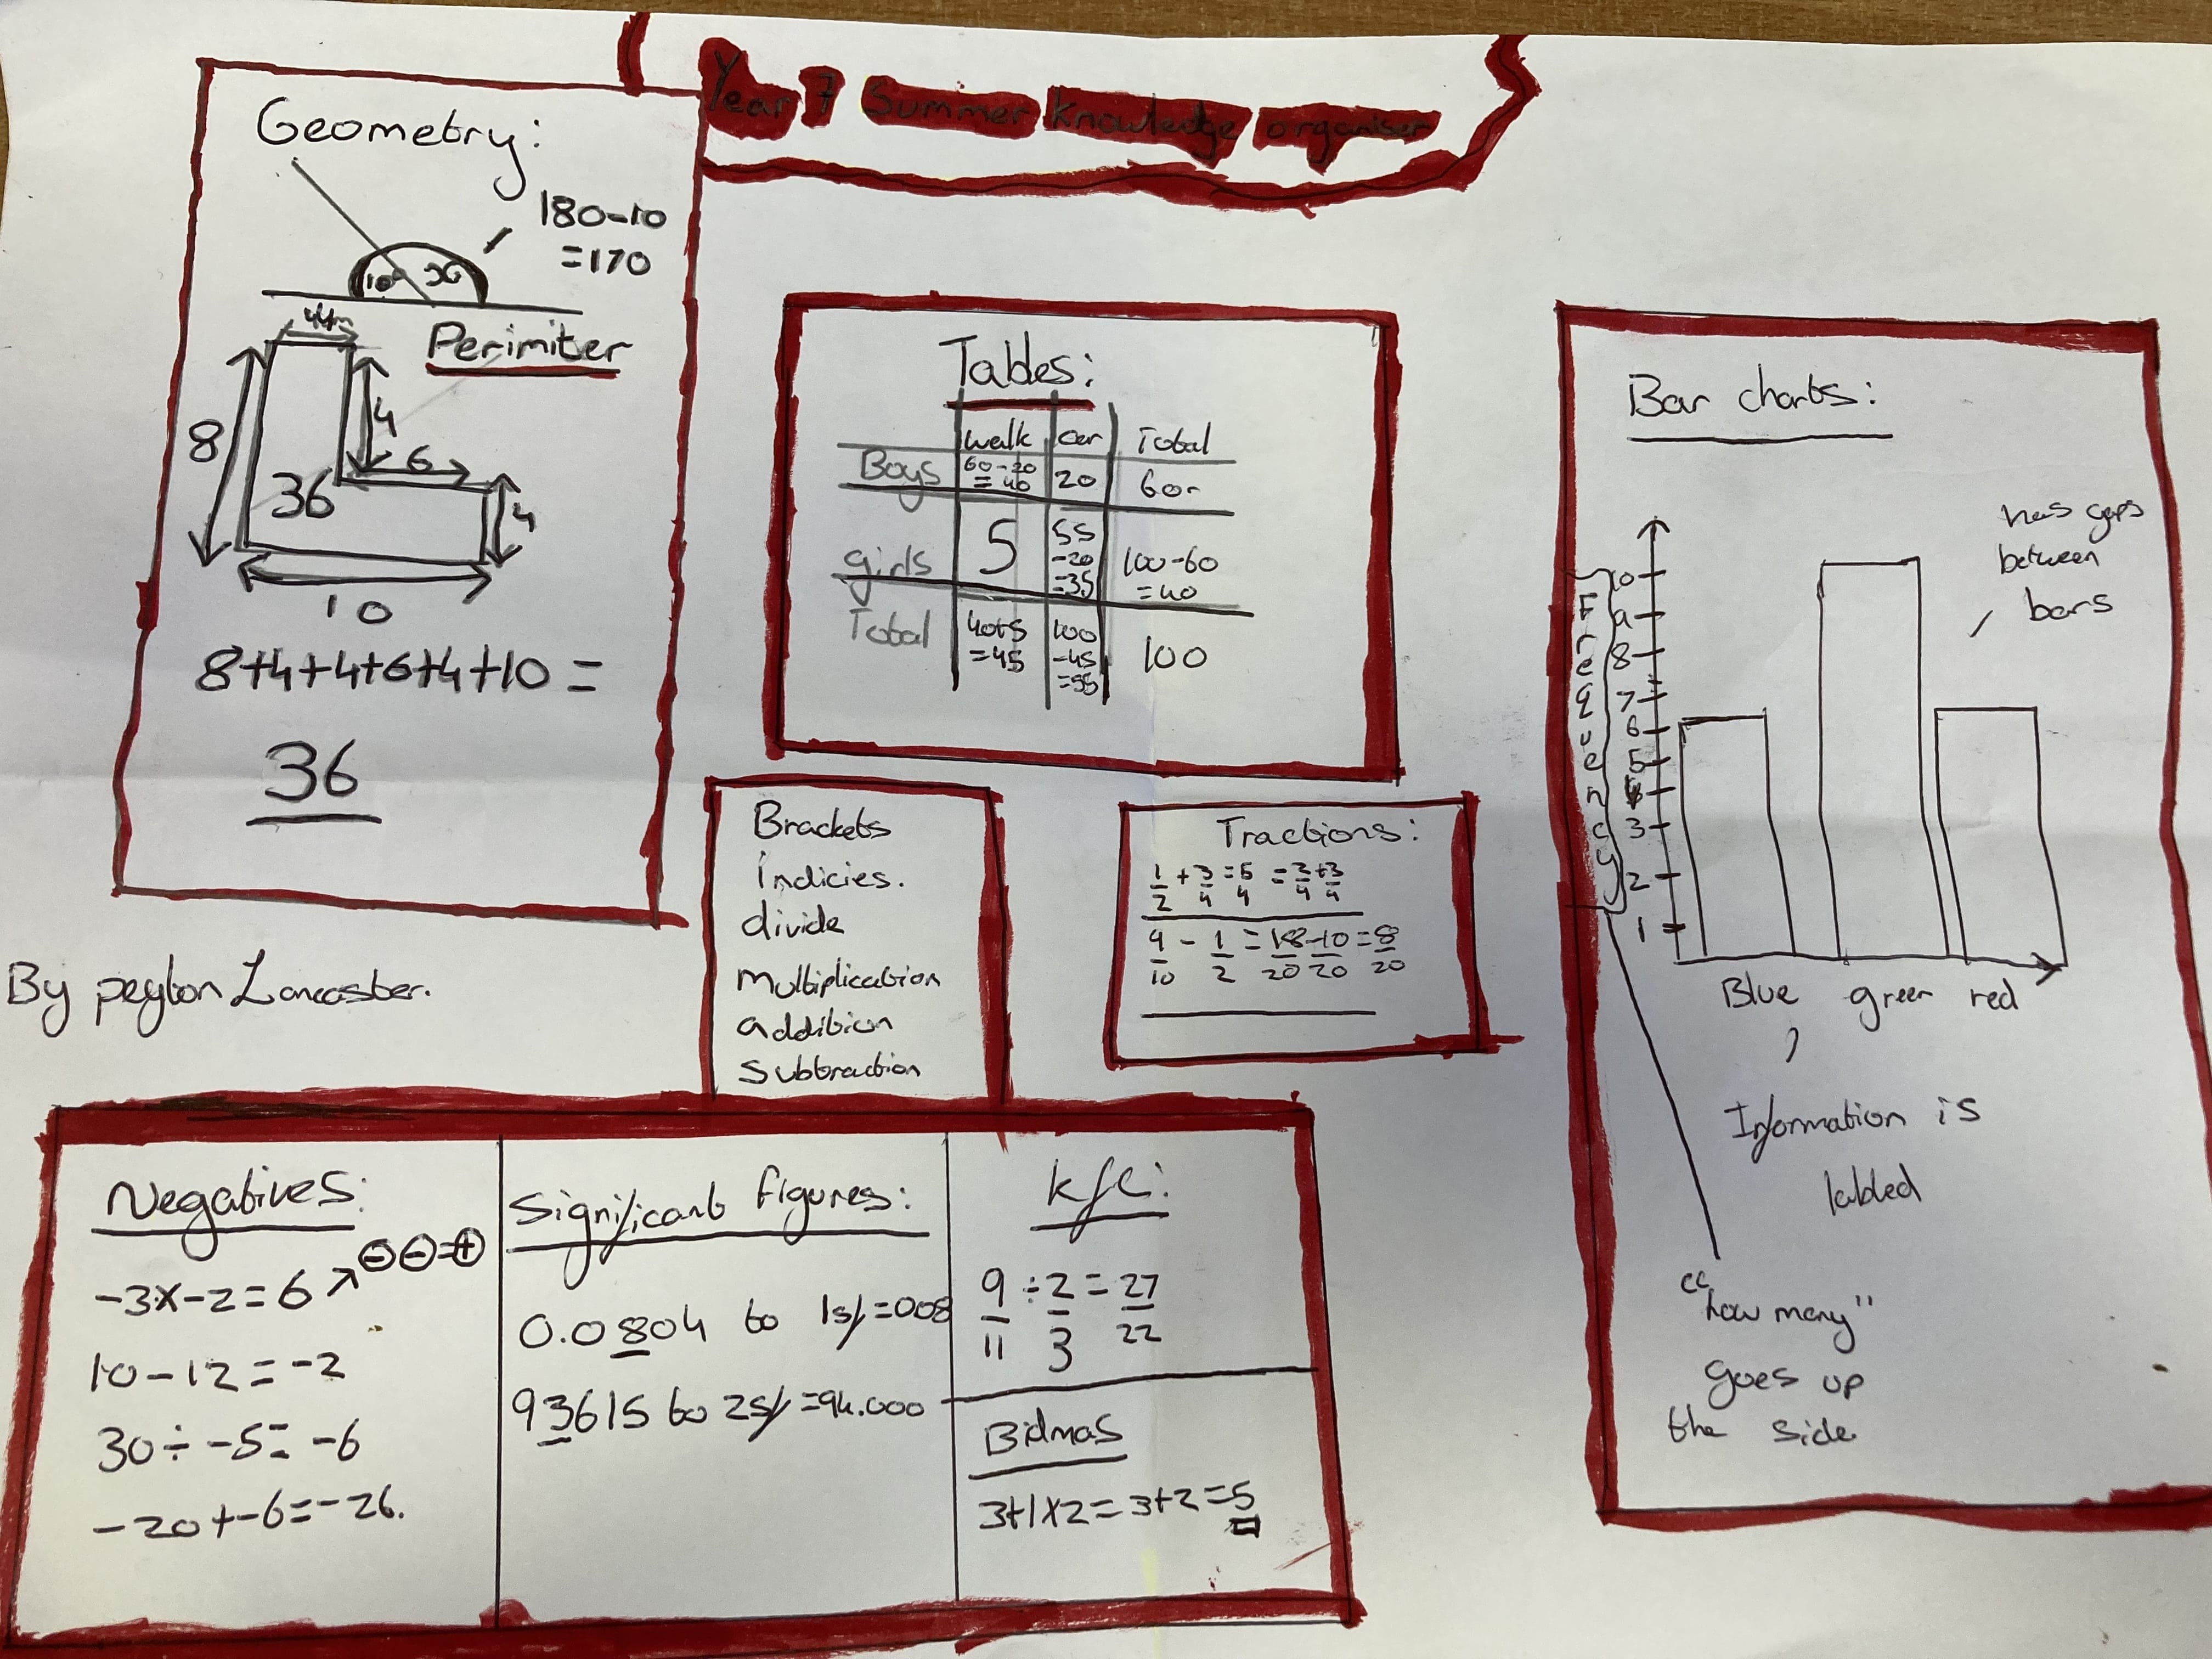 Year 7 Summer Knowledge organiser
Geometry:
180-10
=170
10° x
44m
Perimiter
8
4
6
36
4
10
8+4+4+6+4+10 =
36
By peyton Lancaster.
Tables:
walk car Total
Boys 60-20 =40 20 60
girls 5 55 -20 =35 100-60 =40
Total 40+5 =45 100 -45 =55 100
Brackets
indicies.
divide
multiplication
addition
subtraction
Fractions:
1/2 + 3/4 = 5/4 = 2/4 + 3/4
9/10 - 1/2 = 18/20 - 10/20 = 8/20
Bar charts:
has gaps
between
bars
Frequency
10
9
8
7
6
5
4
3
2
1
Blue green red
Information is
labled
"how many"
goes up
the side
Negatives:
-3x-2=6 ⊖⊖=⊕
10-12=-2
30÷-5=-6
-20+-6=-26.
Significant figures:
0.0804 to 1sf=008
93615 to 2sf=94.000
kfc:
9/11 ÷ 2/3 = 27/22
Bidmas
3+1x2=3+2=5